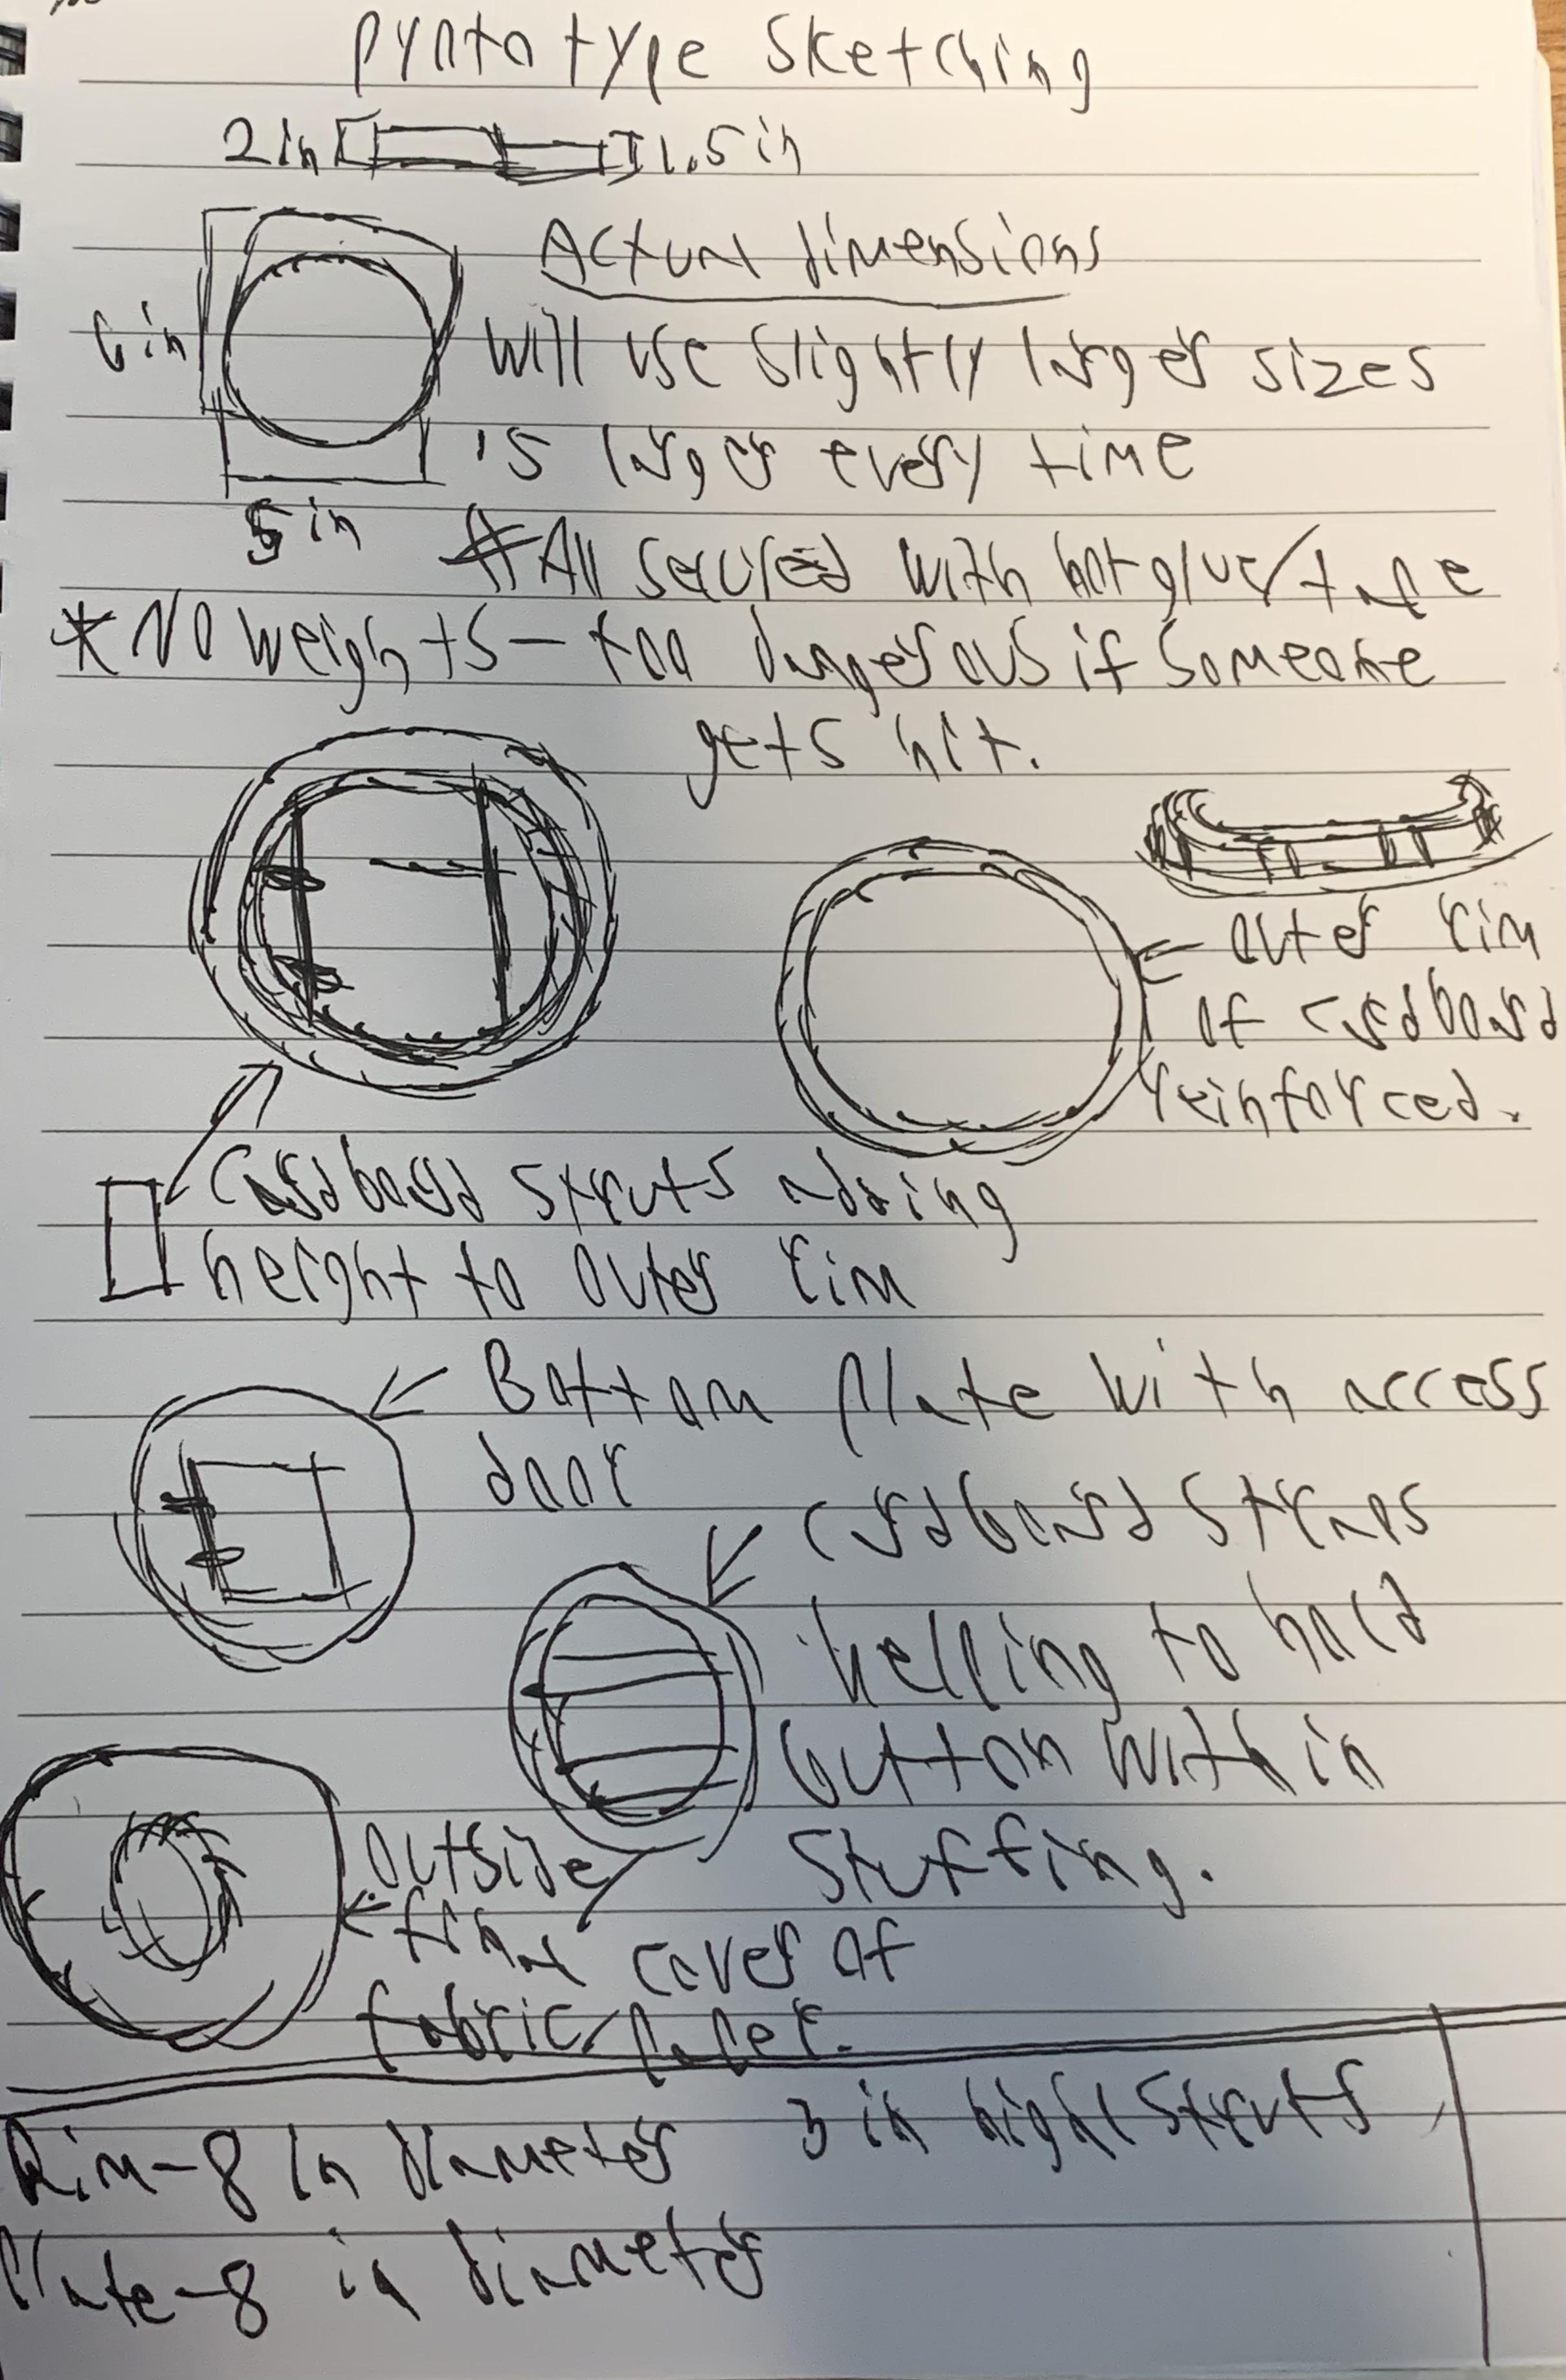 Prototype Sketching
2in 1.5in
Actual dimensions
6in Will use slightly larger sizes
.5 larger every time
5in
*All secured with hot glue/tape
*No weights - too dangerous if someone
gets hit.
outer rim
of cardboard
reinforced.
Cardboard struts adding
height to outer rim
Bottom plate with access
door
cardboard straps
helping to hold
button within
stuffing.
outside
final cover of
fabric/paper.
Rim-8 in diameter 3 in high struts
Plate-8 in diameter